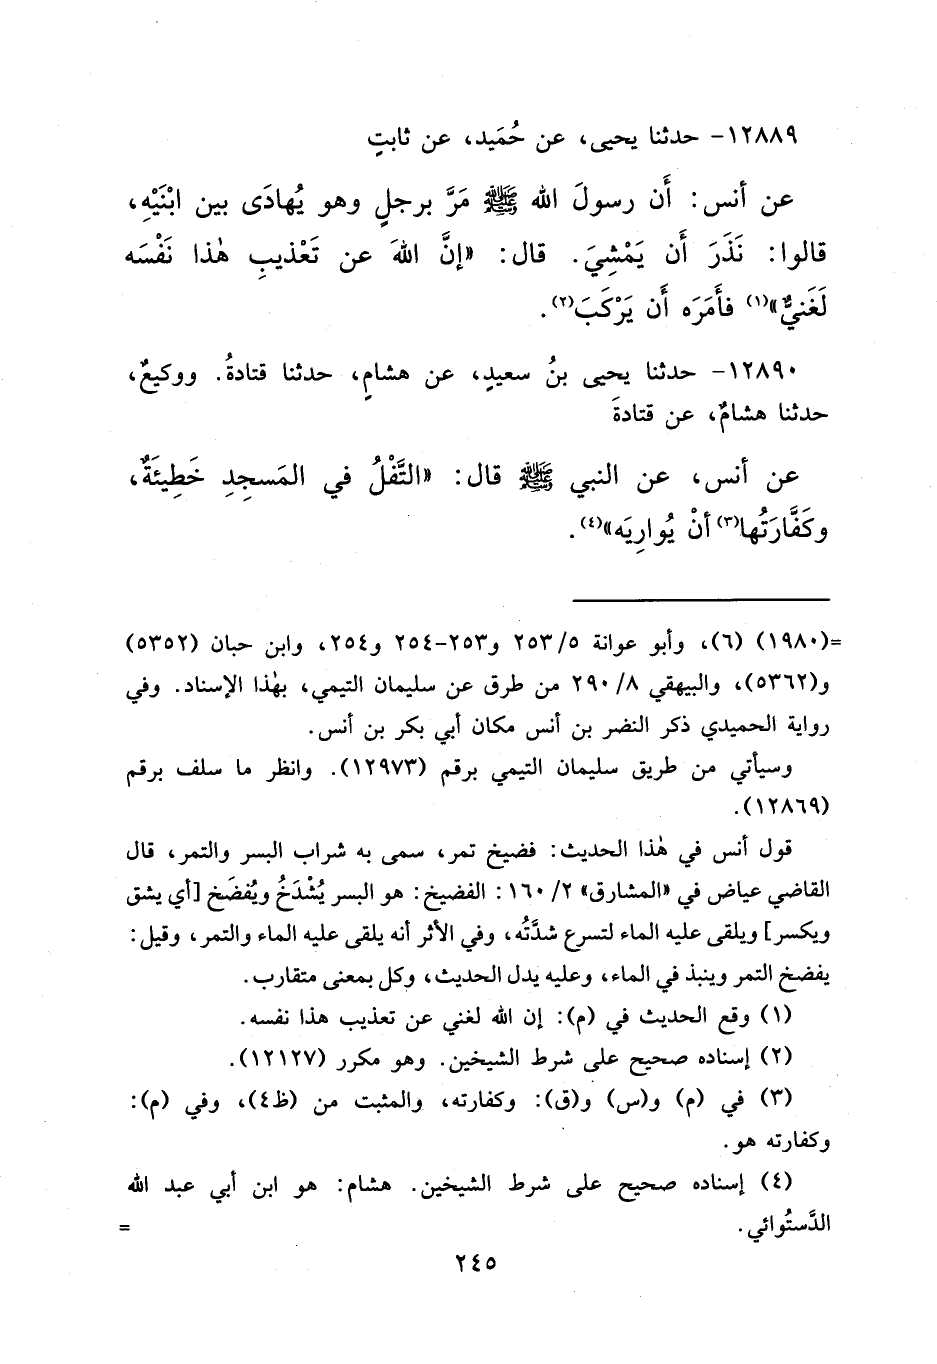 ١٢٨٨٩- حدثنا يحيى، عن حُمَيد، عن ثابتٍ
عن أنس: أَن رسولَ الله ﷺ مَرَّ برجلٍ وهو يُهادَى بين ابْنَيْهِ،
قالوا: نَذَرَ أَن يَمْشِيَ. قال: «إنَّ اللهَ عن تَعْذيبِ هٰذا نَفْسَه
لَغَنيٌّ»(١) فأَمَرَه أَن يَرْكَبَ(٢).
١٢٨٩٠- حدثنا يحيى بنُ سعيدٍ، عن هشامٍ، حدثنا قتادةُ. ووكيعٌ،
حدثنا هشامٌ، عن قتادةَ
عن أنس، عن النبي ﷺ قال: «التَّفْلُ في المَسجِدِ خَطِيئَةٌ،
وكَفَّارَتُها(٣) أنْ يُوارِيَه»(٤).
=(١٩٨٠) (٦)، وأبو عوانة ٢٥٣/٥ و٢٥٣-٢٥٤ و٢٥٤، وابن حبان (٥٣٥٢)
و(٥٣٦٢)، والبيهقي ٢٩٠/٨ من طرق عن سليمان التيمي، بهٰذا الإسناد. وفي
رواية الحميدي ذكر النضر بن أنس مكان أبي بكر بن أنس.
وسيأتي من طريق سليمان التيمي برقم (١٢٩٧٣). وانظر ما سلف برقم
(١٢٨٦٩).
قول أنس في هٰذا الحديث: فضيخ تمر، سمى به شراب البسر والتمر، قال
القاضي عياض في «المشارق» ١٦٠/٢: الفضيخ: هو البسر يُشْدَخُ ويُفضَخ [أي يشق
ويكسر] ويلقى عليه الماء لتسرع شدَّتُه، وفي الأثر أنه يلقى عليه الماء والتمر، وقيل:
يفضخ التمر وينبذ في الماء، وعليه يدل الحديث، وكل بمعنى متقارب.
(١) وقع الحديث في (م): إن الله لغني عن تعذيب هذا نفسه.
(٢) إسناده صحيح على شرط الشيخين. وهو مكرر (١٢١٢٧).
(٣) في (م) و(س) و(ق): وكفارته، والمثبت من (ظ٤)، وفي (م):
وكفارته هو.
(٤) إسناده صحيح على شرط الشيخين. هشام: هو ابن أبي عبد الله
الدَّستُوائي. =
٢٤٥